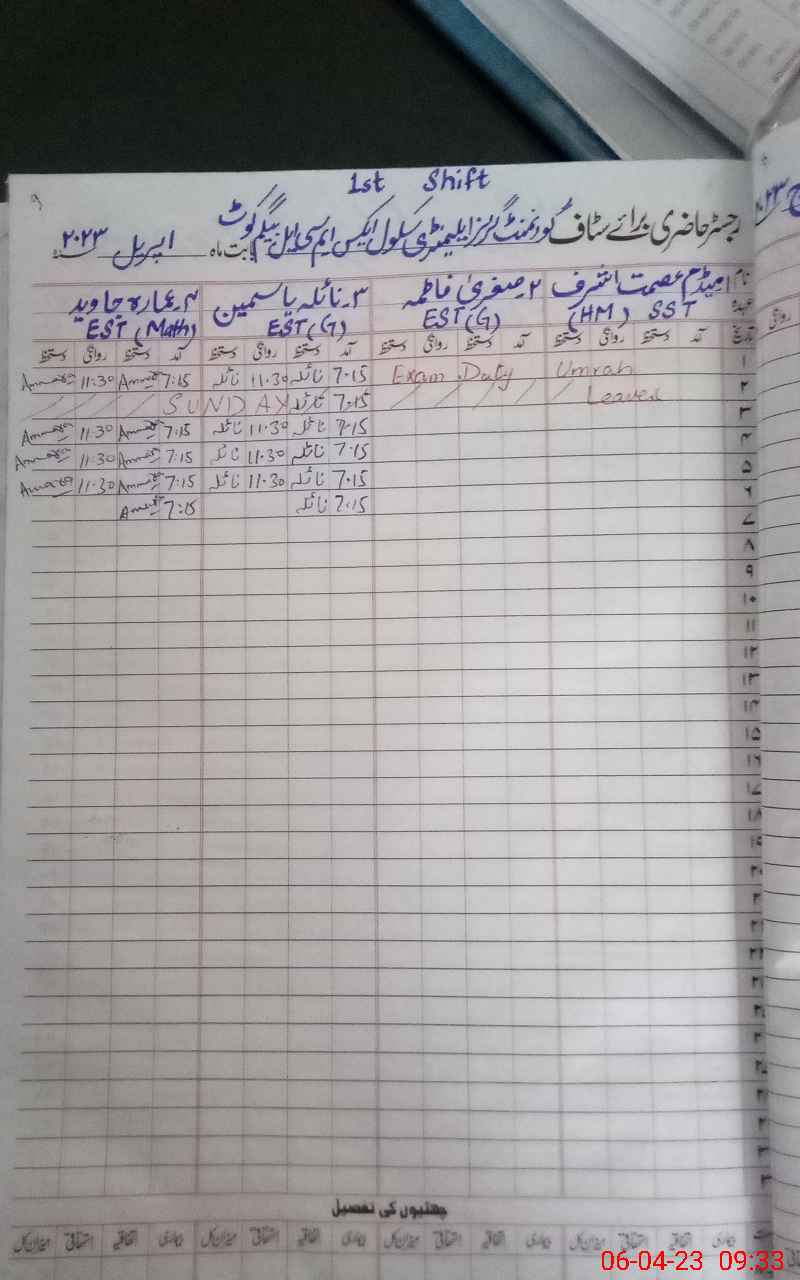 1st Shift
رجسٹر حاضری برائے سٹاف گورنمنٹ گرلز ایلیمنٹری سکول ایکس ایم سی ایل بیگم کوٹ بابت ماہ اپریل ۲۰۲۳
نام ۱۔ میڈم عصمت اشرف ۲۔ صغریٰ فاطمہ ۳۔ نائلہ یاسمین ۴۔ عمارہ جاوید
عہدہ (HM) SST EST(G) EST(G) EST (Math)
تاریخ آمد دستخط روانگی دستخط آمد دستخط روانگی دستخط آمد دستخط روانگی دستخط آمد دستخط روانگی دستخط
۱ Umrah Exam Duty 7.15 نائلہ 11.30 نائلہ 7:15 11:30
۲ Leaves 7.15 نائلہ SUNDAY
۳ 7.15 نائلہ 11.30 نائلہ 7:15 11:30
۴ 7.15 نائلہ 11.30 نائلہ 7:15 11:30
۵ 7.15 نائلہ 11.30 نائلہ 7:15 11:30
۶ 7.15 نائلہ 7:15
۷
۸
۹
۱۰
۱۱
۱۲
۱۳
۱۴
۱۵
۱۶
۱۷
۱۸
۱۹
چھٹیوں کی تفصیل
بیماری اتفاقیہ استحقاقی میزان کل بیماری اتفاقیہ استحقاقی میزان کل بیماری اتفاقیہ استحقاقی میزان کل بیماری اتفاقیہ استحقاقی میزان کل
06-04-23 09:33